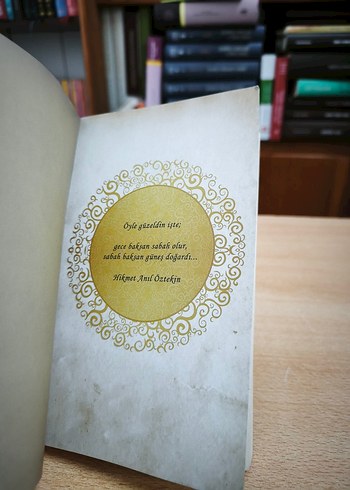 Öyle güzeldin işte;
gece baksan sabah olur,
sabah baksan güneş doğardı...
Hikmet Anıl Öztekin